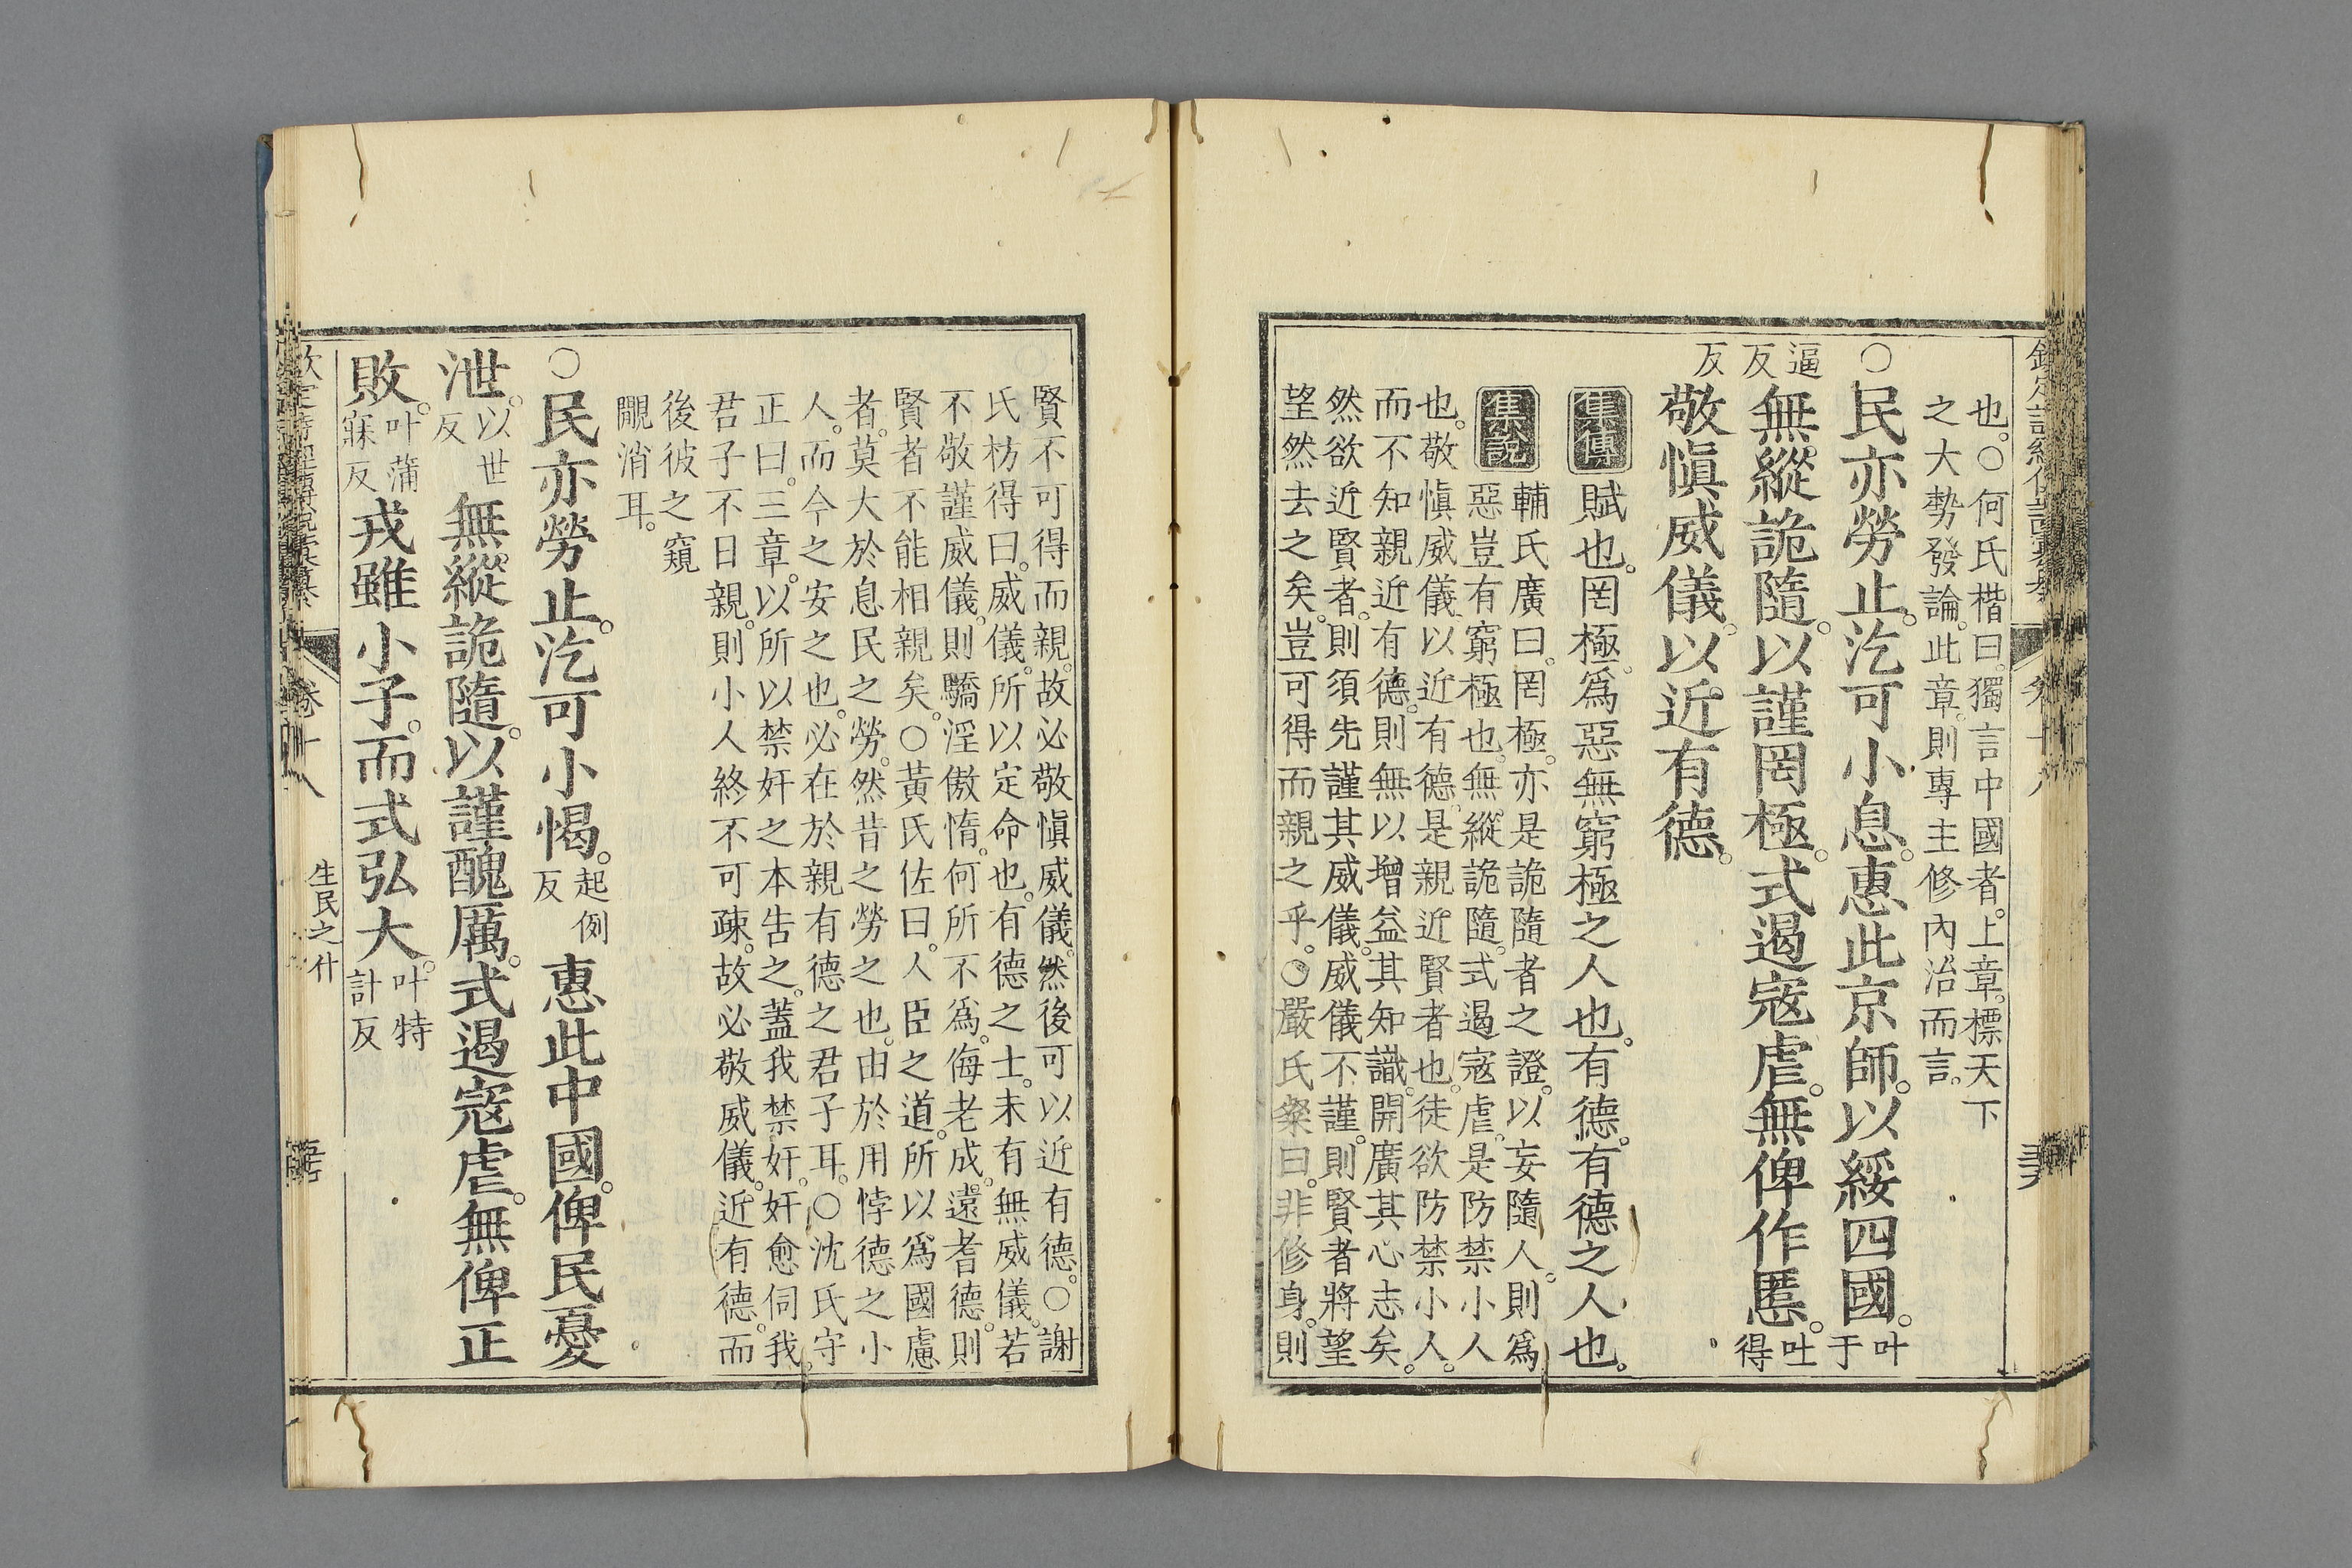 也。○何氏楷曰。獨言中國者。上章。標天下
之大勢發論。此章。則專主修內治而言。
○民亦勞止。汔可小息。惠此京師。以綏四國。叶于
逼反無縱詭隨。以謹罔極。式遏寇虐。無俾作慝。吐得
反敬慎威儀。以近有德。
集傳 賦也。罔極。為惡無窮極之人也。有德。有德之人也。
集說 輔氏廣曰。罔極。亦是詭隨者之證。以妄隨人。則爲
惡豈有窮極也。無縱詭隨。式遏寇虐。是防禁小人
也。敬慎威儀。以近有德。是親近賢者也。徒欲防禁小人。
而不知親近有德。則無以增益其知識。開廣其心志矣。
然欲近賢者。則須先謹其威儀。威儀不謹。則賢者將望
望然去之矣。豈可得而親之乎。○嚴氏粲曰。非修身。則
賢不可得而親。故必敬慎威儀。然後可以近有德。○謝
氏枋得曰。威儀。所以定命也。有德之士。未有無威儀。若
不敬謹威儀。則驕淫傲惰。何所不爲。侮老成。遠耆德。則
賢者不能相親矣。○黃氏佐曰。人臣之道。所以爲國慮
者。莫大於息民之勞。然昔之勞之也。由於用悖德之小
人。而今之安之也。必在於親有德之君子耳。○沈氏守
正曰。三章。以所以禁奸之本告之。蓋我禁奸。奸愈伺我。
君子不日親。則小人終不可疎。故必敬威儀。近有德。而
後彼之窺
覵消耳。
○民亦勞止。汔可小愒。起例反惠此中國。俾民憂
泄。以世反無縱詭隨。以謹醜厲。式遏寇虐。無俾正
敗。叶蒲寐反戎雖小子。而式弘大。叶特計反
卷十八
生民之什